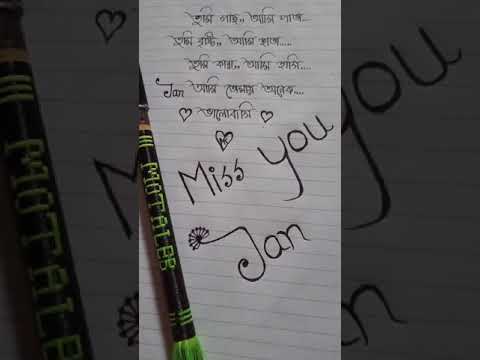 তুমি গাছ,, আমি পাতা...
তুমি বৃষ্টি,, আমি ছাতা....
তুমি কান্না,, আমি হাসি....
Jan আমি তোমায় অনেক....
ভালোবাসি
Miss you
Jan
MOTALEB